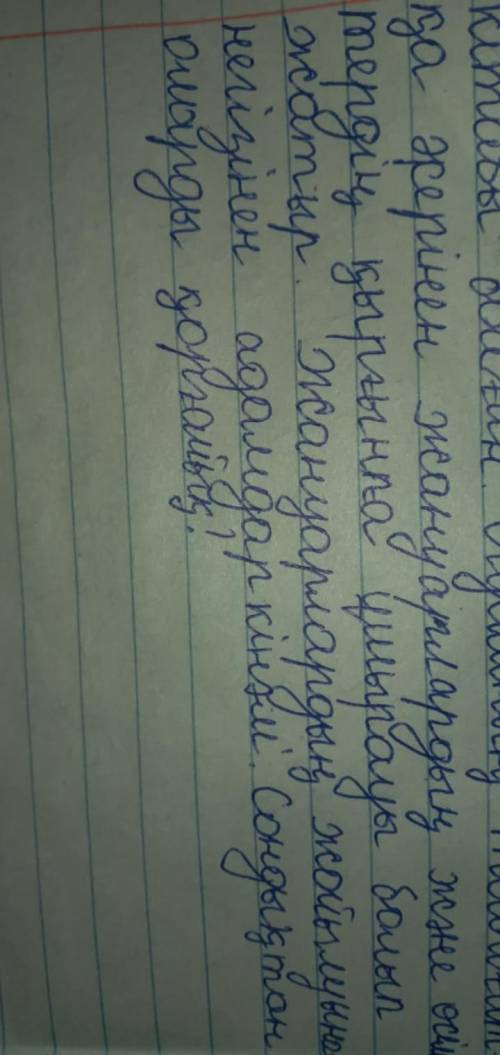 кітабы
қа жерінен жануарлардың және өсім
тердің қырғынға ұшырауы болып
жатыр. Жануарлардың жойылуына
негізінен адамдар кінәлі. Сондықтан
оларды қорғайық!